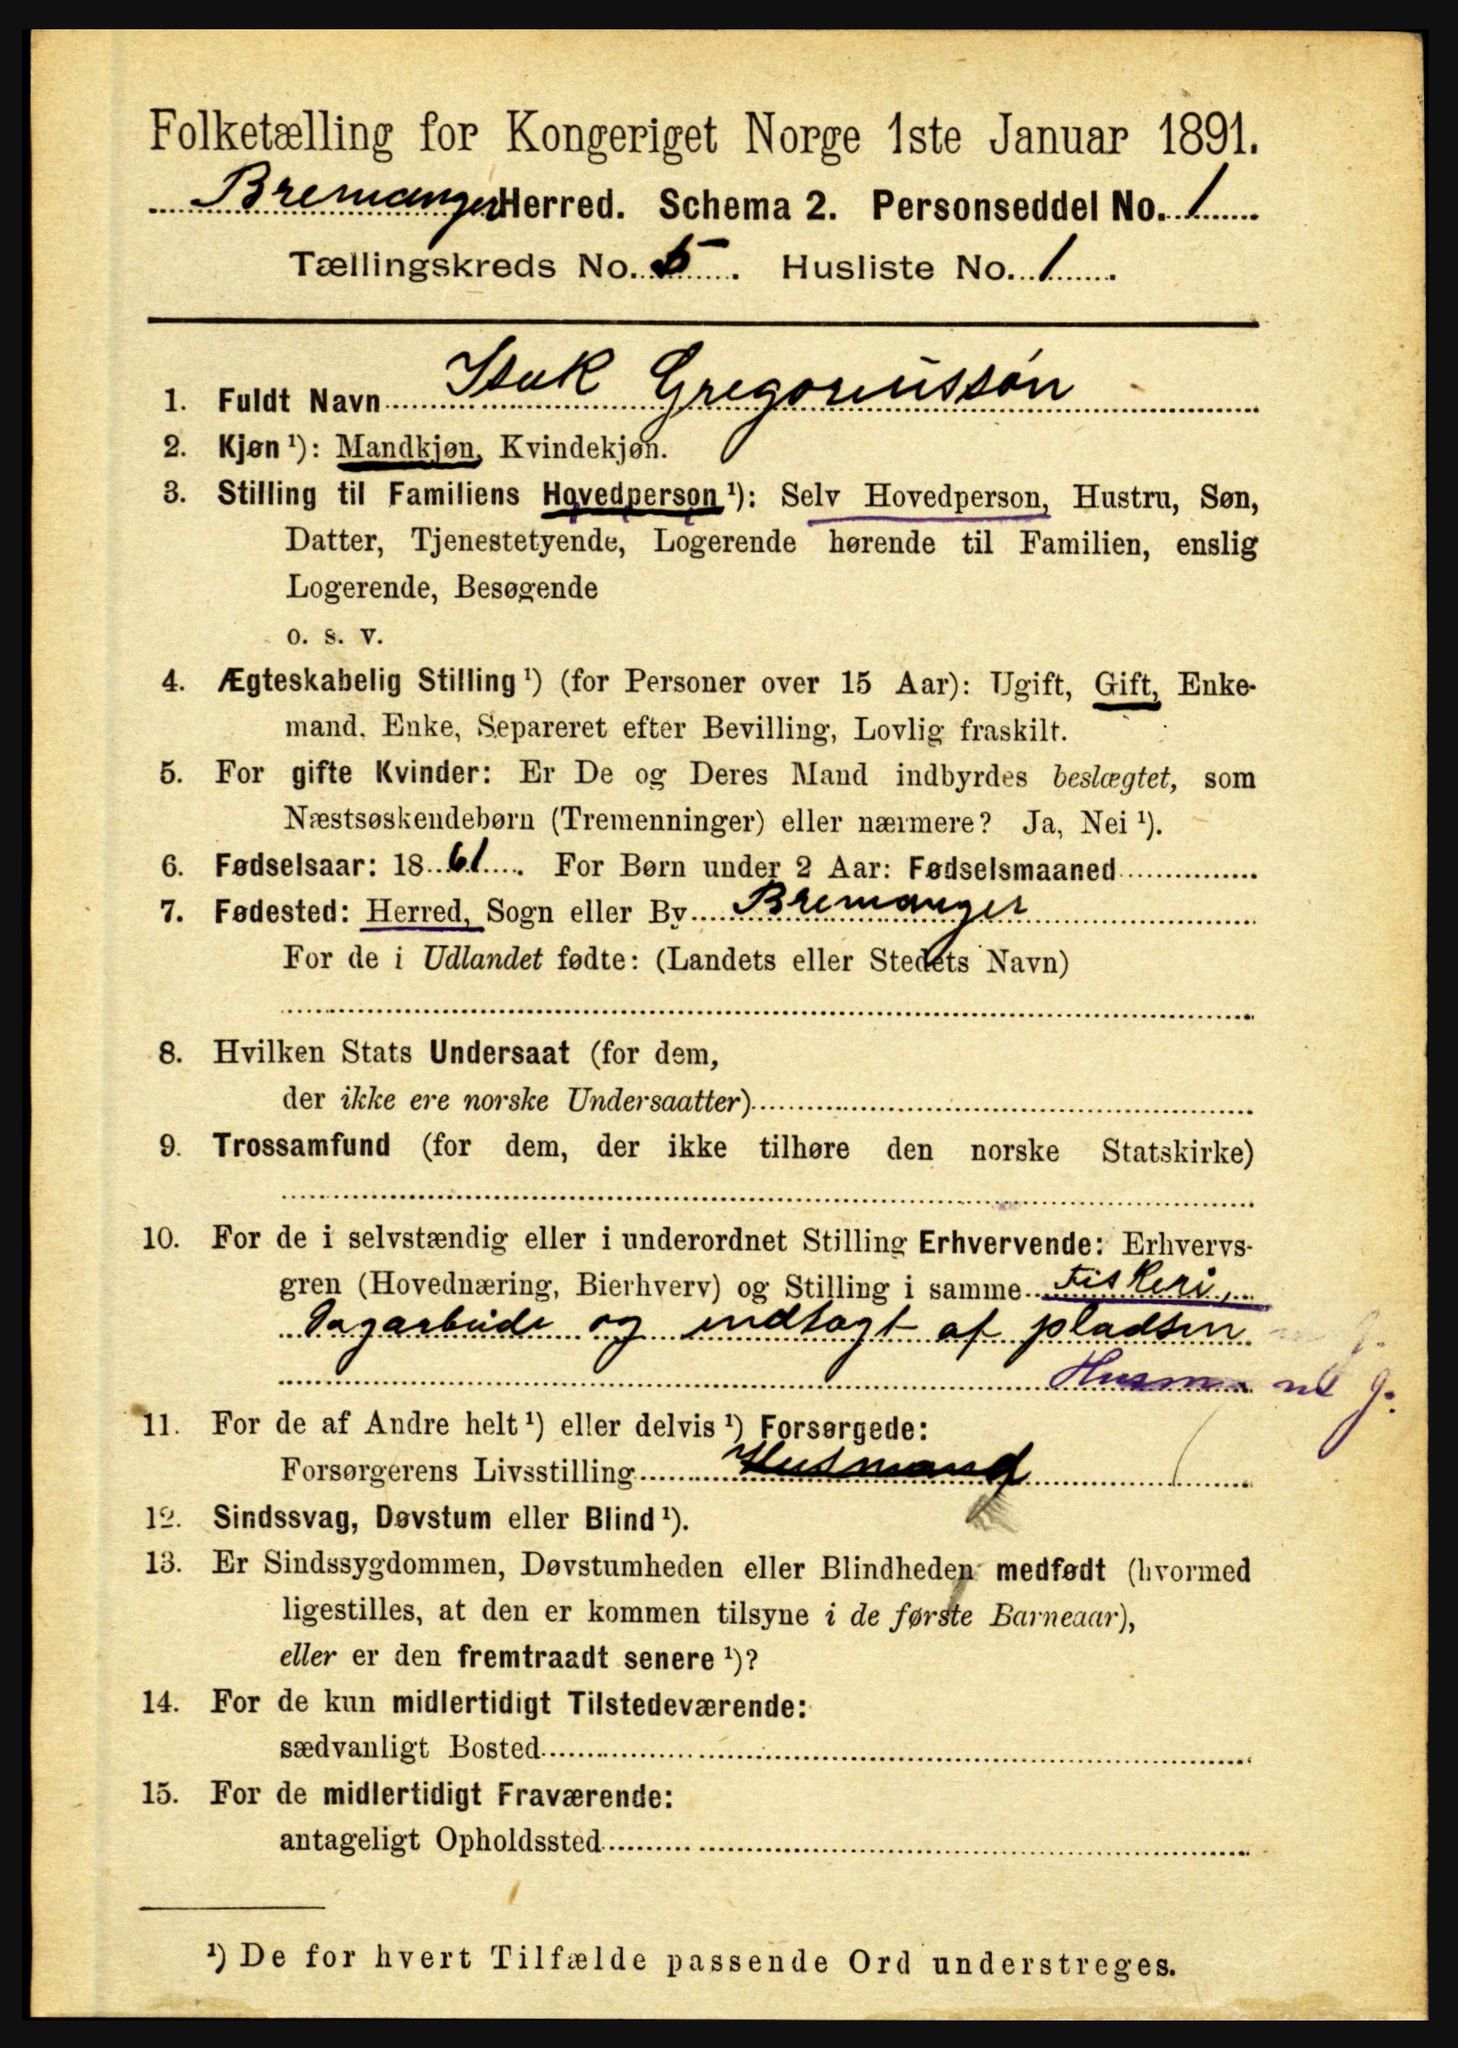 Folketælling for Kongeriget Norge 1ste Januar 1891.
Bremanger Herred. Schema 2. Personseddel No. 1
Tællingskreds No. 5. Husliste No. 1.
1. Fuldt Navn Isak Gregoriussøn
2. Kjøn ¹): Mandkjøn, Kvindekjøn.
3. Stilling til Familiens Hovedperson ¹): Selv Hovedperson, Hustru, Søn,
Datter, Tjenestetyende, Logerende hørende til Familien, enslig
Logerende, Besøgende
o. s. v.
4. Ægteskabelig Stilling ¹) (for Personer over 15 Aar): Ugift, Gift, Enke-
mand, Enke, Separeret efter Bevilling, Lovlig fraskilt.
5. For gifte Kvinder: Er De og Deres Mand indbyrdes beslægtet, som
Næstsøskendebørn (Tremenninger) eller nærmere? Ja, Nei ¹).
6. Fødselsaar: 1861. For Børn under 2 Aar: Fødselsmaaned
7. Fødested: Herred, Sogn eller By Bremanger
For de i Udlandet fødte: (Landets eller Stedets Navn)
8. Hvilken Stats Undersaat (for dem,
der ikke ere norske Undersaatter)
9. Trossamfund (for dem, der ikke tilhøre den norske Statskirke)
10. For de i selvstændig eller i underordnet Stilling Erhvervende: Erhvervs-
gren (Hovednæring, Bierhverv) og Stilling i samme Fiskeri,
Dagarbeide og indtægt af pladsen
Husm m J.
11. For de af Andre helt ¹) eller delvis ¹) Forsørgede:
Forsørgerens Livsstilling Husmand
12. Sindssvag, Døvstum eller Blind ¹).
13. Er Sindssygdommen, Døvstumheden eller Blindheden medfødt (hvormed
ligestilles, at den er kommen tilsyne i de første Barneaar),
eller er den fremtraadt senere ¹)?
14. For de kun midlertidigt Tilstedeværende:
sædvanligt Bosted
15. For de midlertidigt Fraværende:
antageligt Opholdssted
¹) De for hvert Tilfælde passende Ord understreges.